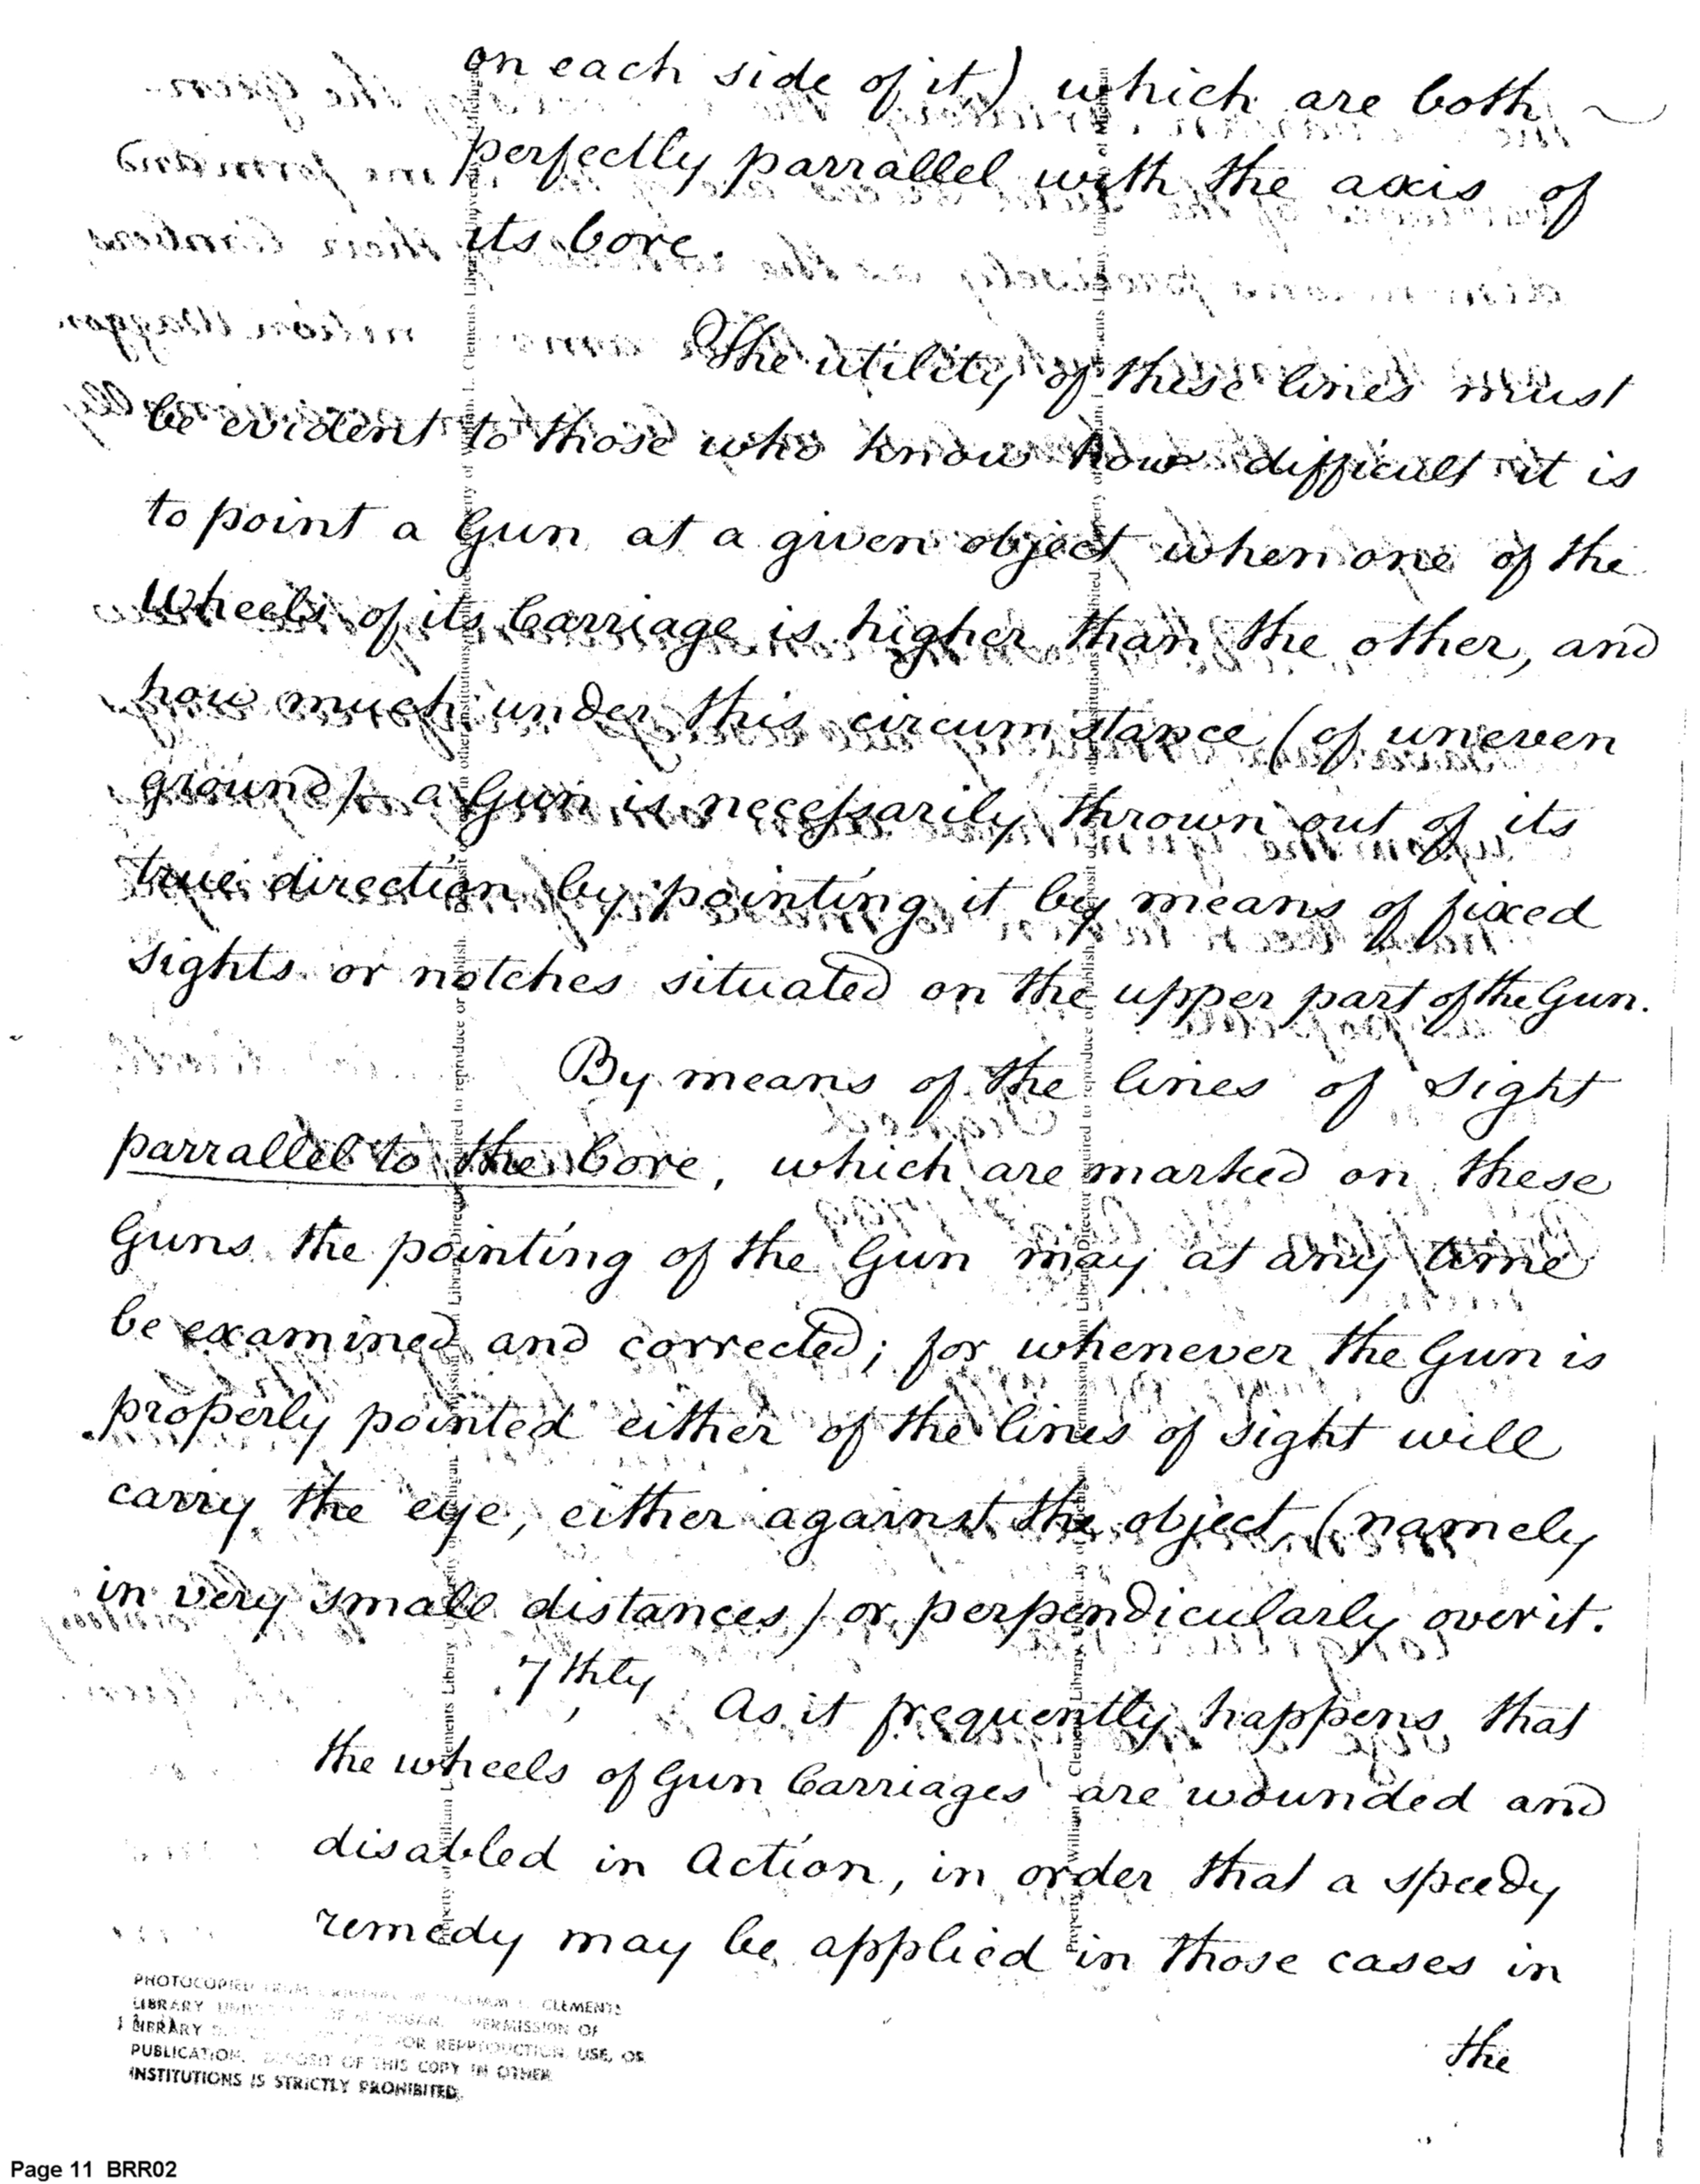 on each side of it) which are both
perfectly parrallel with the axis of
its bore.
The utility of these lines must
be evident to those who know how difficult it is
to point a Gun at a given object when one of the
Wheels of its Carriage is higher than the other, and
how much under this circumstance (of uneven
ground) a Gun is necessarily thrown out of its
true direction by pointing it by means of fixed
sights or notches situated on the upper part of the Gun.
By means of the lines of sight
parrallel to the bore, which are marked on these
Guns the pointing of the Gun may at any time
be examined and corrected; for whenever the Gun is
properly pointed either of the lines of sight will
carry the eye, either against the object (namely
in very small distances) or perpendicularly over it.
7thly As it frequently happens that
the wheels of Gun Carriages are wounded and
disabled in Action, in order that a speedy
remedy may be applied in those cases in
the
PHOTOCOPIED CLEMENTS
LIBRARY PERMISSION OF
LIBRARY FOR REPRODUCTION, USE, OR
PUBLICATION. DEPOSIT OF THIS COPY IN OTHER
INSTITUTIONS IS STRICTLY PROHIBITED.
Page 11 BRR02